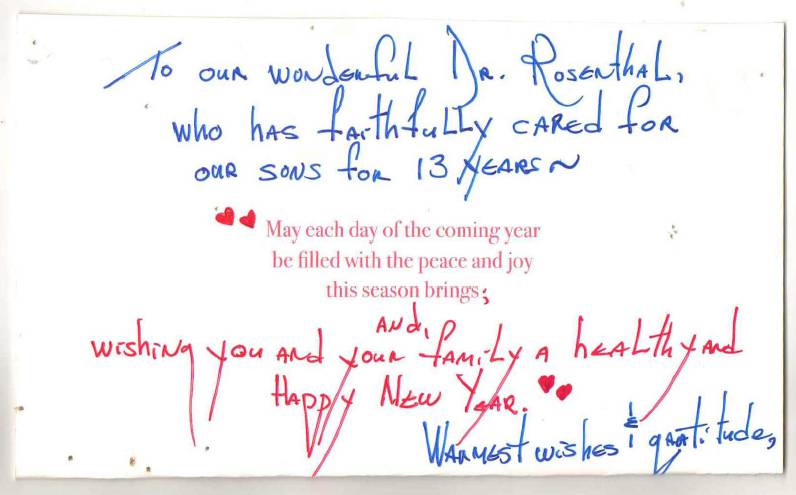 To our wonderful Dr. Rosenthal,
who has faithfully cared for
our sons for 13 years ~
May each day of the coming year
be filled with the peace and joy
this season brings;
and,
wishing you and your family a healthy and
Happy New Year.
Warmest wishes & gratitude,